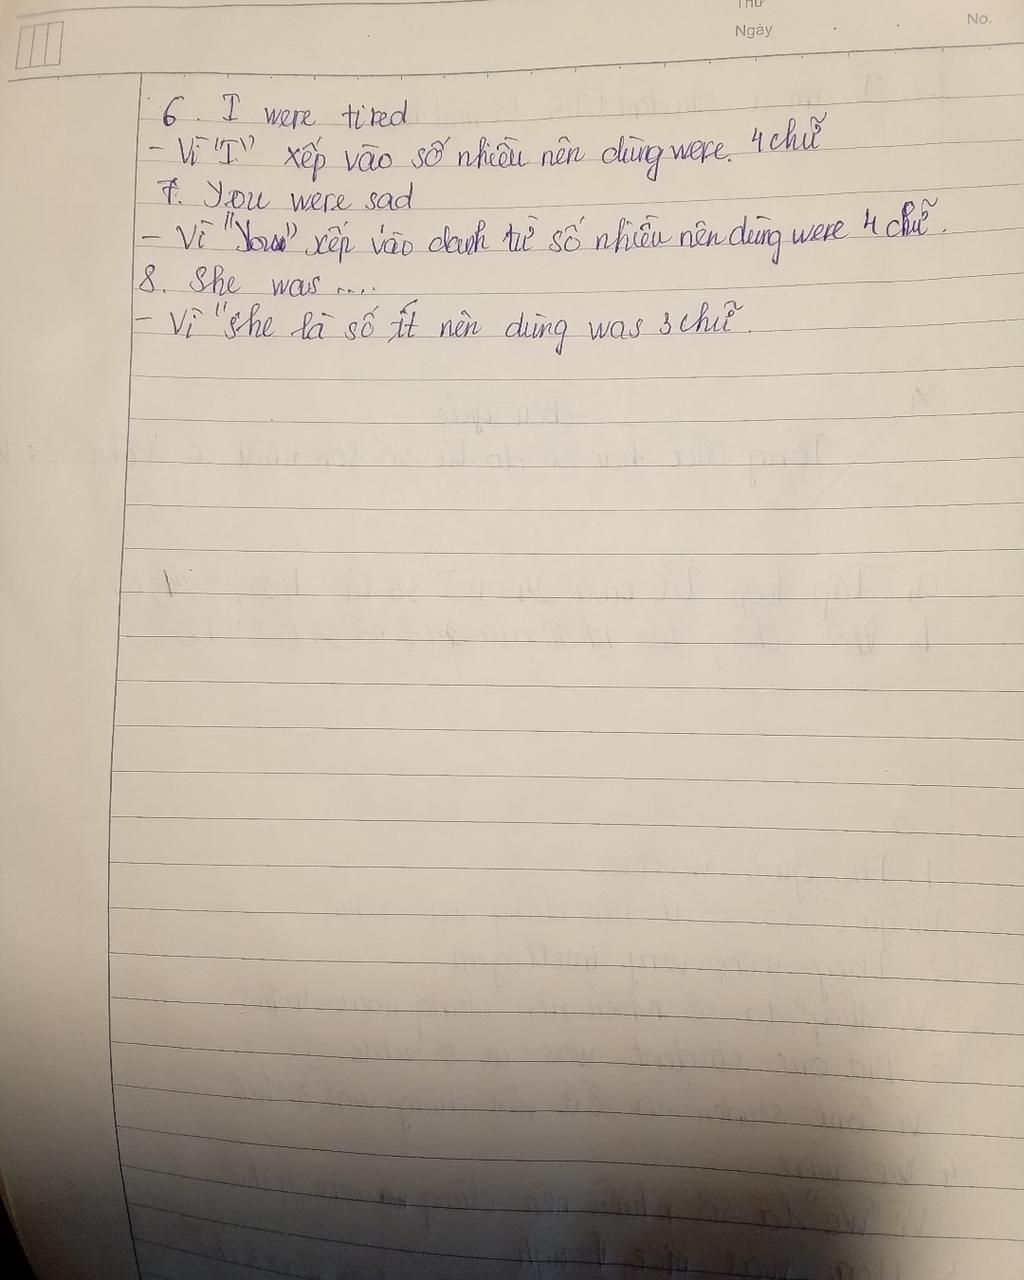 Thứ
Ngày
No.
6. I were tired
- Vì "I" xếp vào số nhiều nên dùng were. 4 chữ
7. You were sad
- Vì "You" xếp vào danh từ số nhiều nên dùng were 4 chữ.
8. She was ....
- Vì "she là số ít nên dùng was 3 chữ.